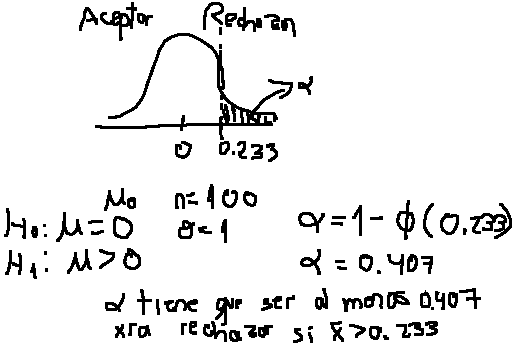 Aceptar Rechazan
α
0 0.233
μ₀ n=100
H₀: μ=0 σ=1 α=1-ϕ(0.233)
H₁: μ>0 α=0.407
α tiene que ser al menos 0.407
xra rechazar si x̄>0.233